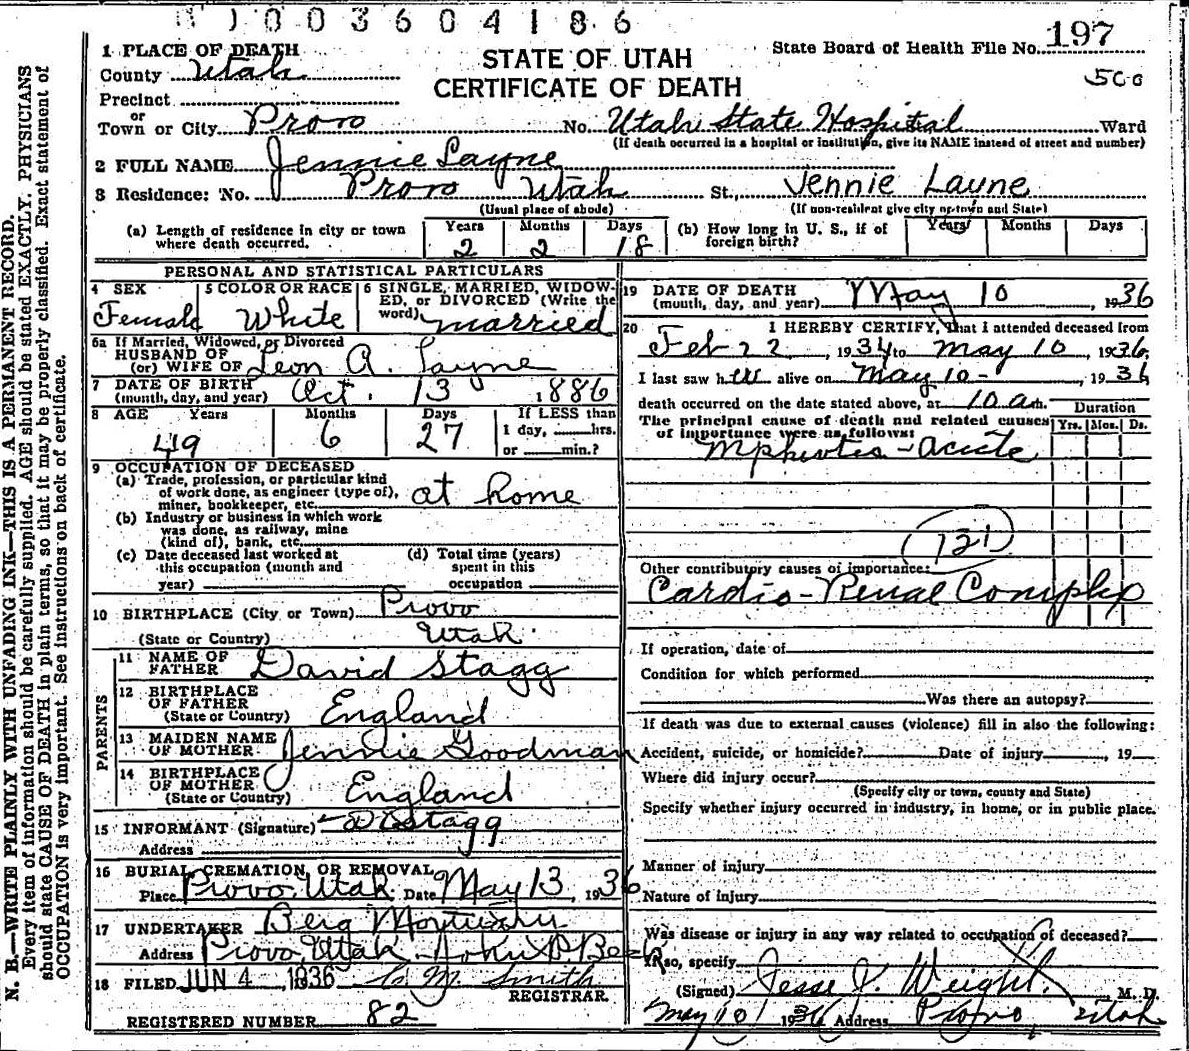 003604186
1 PLACE OF DEATH
STATE OF UTAH
CERTIFICATE OF DEATH
State Board of Health File No. 197
500
County Utah
Precinct
or
Town or City Provo No. Utah State Hospital Ward
(If death occurred in a hospital or institution, give its NAME instead of street and number)
2 FULL NAME Jennie Layne
3 Residence: No. Provo Utah St., Jennie Layne
(Usual place of abode) (If non-resident give city or town and State)
(a) Length of residence in city or town where death occurred. Years 2 Months 2 Days 18
(b) How long in U. S., if of foreign birth? Years Months Days
PERSONAL AND STATISTICAL PARTICULARS
4 SEX Female
5 COLOR OR RACE White
6 SINGLE, MARRIED, WIDOWED, or DIVORCED (Write the word) married
6a If Married, Widowed, or Divorced
HUSBAND OF
(or) WIFE OF Leon A. Layne
7 DATE OF BIRTH
(month, day, and year) Oct. 13 1886
8 AGE Years 49 Months 6 Days 27 If LESS than 1 day, hrs. or min.?
9 OCCUPATION OF DECEASED
(a) Trade, profession, or particular kind
of work done, as engineer (type of),
miner, bookkeeper, etc. at home
(b) Industry or business in which work
was done, as railway, mine
(kind of), bank, etc.
(c) Date deceased last worked at
this occupation (month and
year)
(d) Total time (years)
spent in this
occupation
10 BIRTHPLACE (City or Town) Provo
(State or Country) Utah
PARENTS
11 NAME OF
FATHER David Stagg
12 BIRTHPLACE
OF FATHER
(State or Country) England
13 MAIDEN NAME
OF MOTHER Jennie Goodman
14 BIRTHPLACE
OF MOTHER
(State or Country) England
15 INFORMANT (Signature) Stagg
Address
16 BURIAL, CREMATION, OR REMOVAL
Place Provo, Utah Date May 13, 1936
17 UNDERTAKER Berg Mortuary
Address Provo, Utah
18 FILED JUN 4, 1936 Smith
REGISTRAR.
REGISTERED NUMBER 82
19 DATE OF DEATH
(month, day, and year) May 10, 1936
20 I HEREBY CERTIFY, that I attended deceased from
Feb 22, 1934 to May 10, 1936
I last saw her alive on May 10-, 1936
death occurred on the date stated above, at 10 a.m.
The principal cause of death and related causes
of importance were as follows:
Duration
Yrs. Mos. Ds.
Nephritis - acute
121
Other contributory causes of importance:
Cardio-Renal Complex
If operation, date of
Condition for which performed
Was there an autopsy?
If death was due to external causes (violence) fill in also the following:
Accident, suicide, or homicide? Date of injury , 19
Where did injury occur?
(Specify city or town, county and State)
Specify whether injury occurred in industry, in home, or in public place.
Manner of injury
Nature of injury
Was disease or injury in any way related to occupation of deceased?
If so, specify
(Signed) Jesse J. Weight M. D.
May 10, 1936 Address Provo, Utah
N. B.—WRITE PLAINLY WITH UNFADING INK—THIS IS A PERMANENT RECORD.
Every item of information should be carefully supplied. AGE should be stated EXACTLY. PHYSICIANS
should state CAUSE OF DEATH in plain terms, so that it may be properly classified. Exact statement of
OCCUPATION is very important. See instructions on back of certificate.